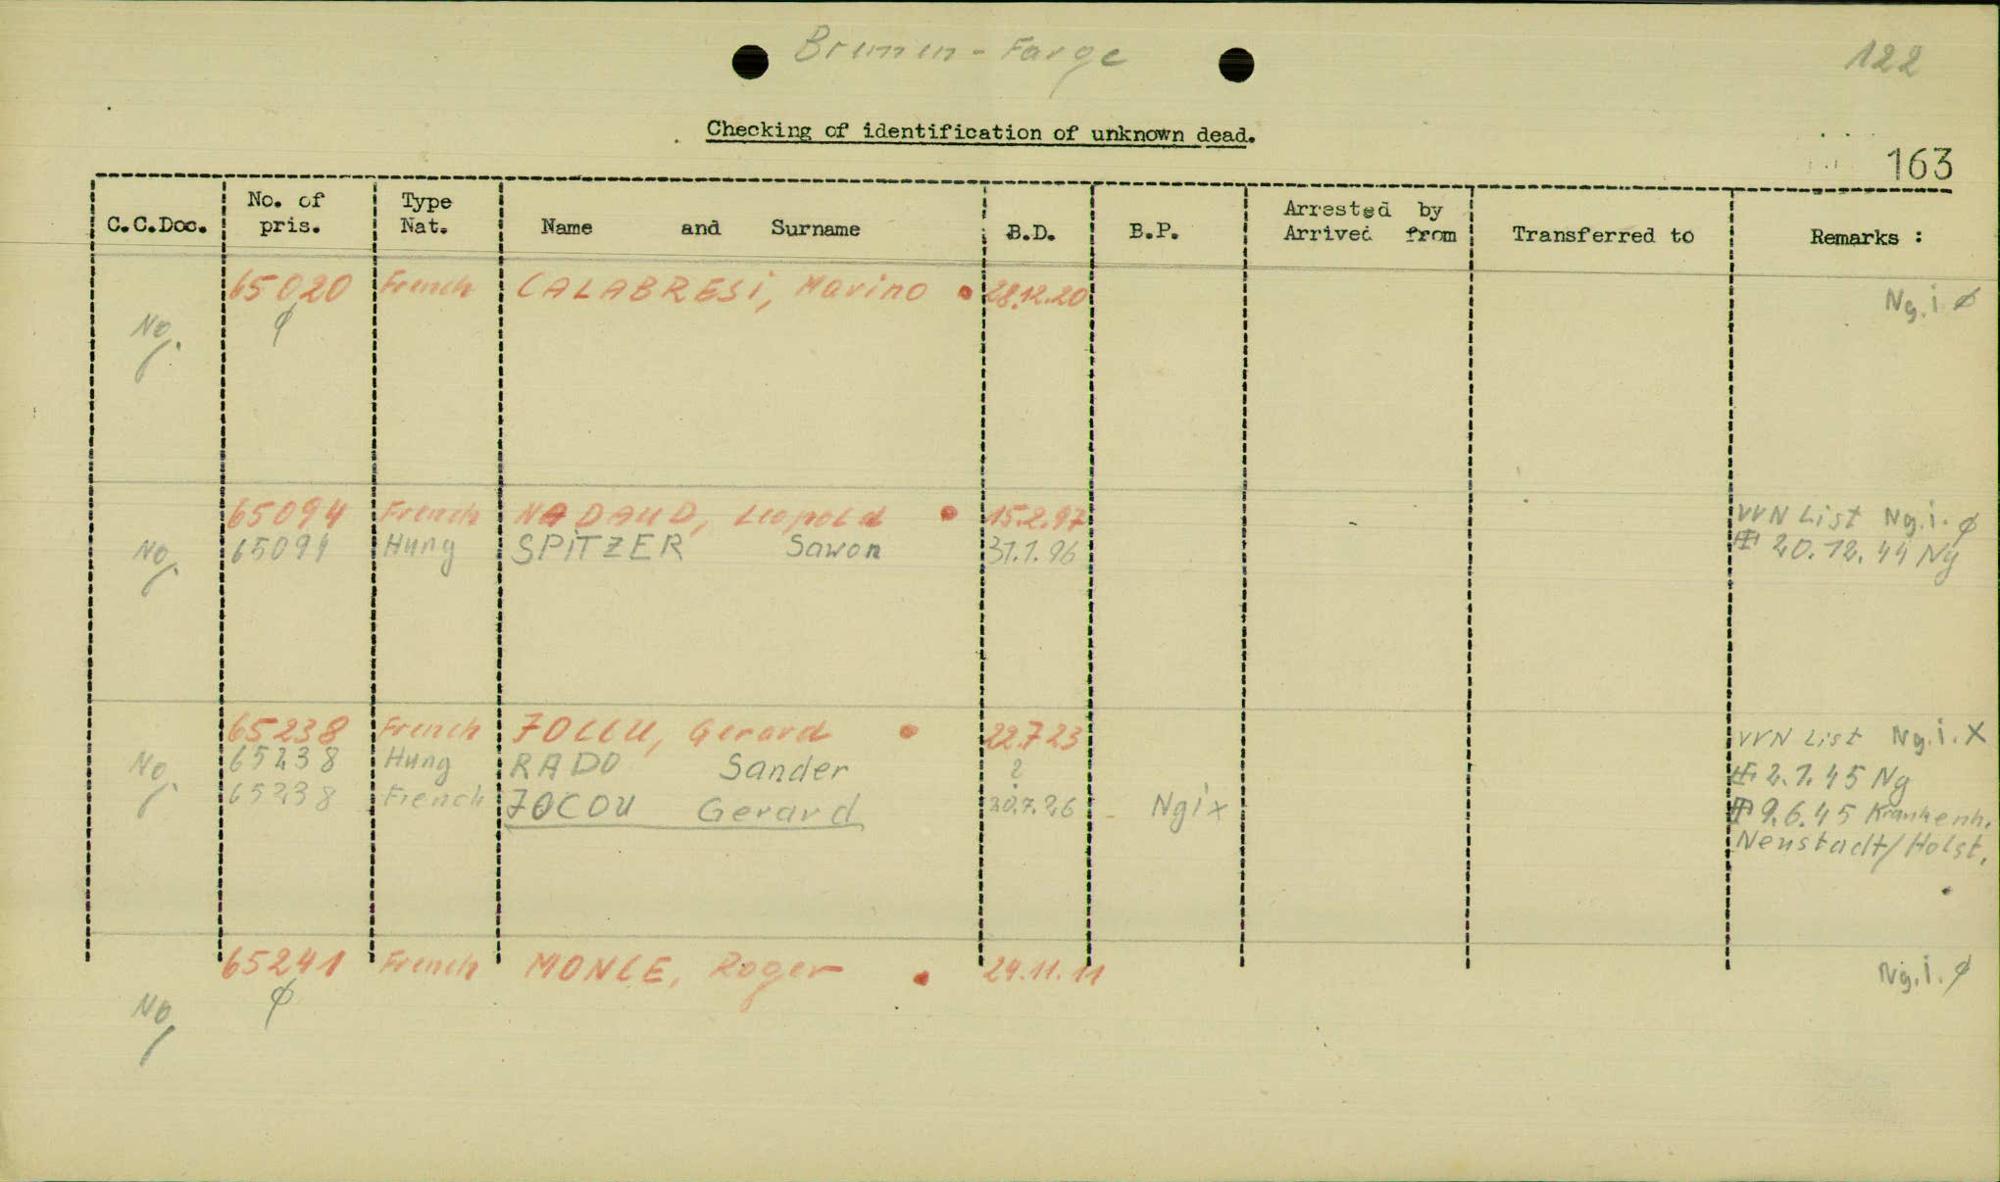 Bremen-Farge
122
Checking of identification of unknown dead.
163
C.C.Doc. No. of pris. Type Nat. Name and Surname B.D. B.P. Arrested by Arrived from Transferred to Remarks :
65020 French CALABRESI, Marino 28.12.20 Ng.i. ø
No. ø
65094 French NADAUD, Leopold 15.2.97 VVN List Ng.i. ø
No. 65094 Hung SPITZER Sawon 31.1.96 20.12.44 Ng
65238 French JOCCU, Gerard 22.7.23 VVN List Ng.i. X
No. 65238 Hung RADO Sander ? 2.1.45 Ng
65238 French JOCOU Gerard 20.7.26 Ngi x 9.6.45 Krankenh.
Neustadt/Holst.
65241 French MONCE, Roger 29.11.11 Ng.i. ø
No ø